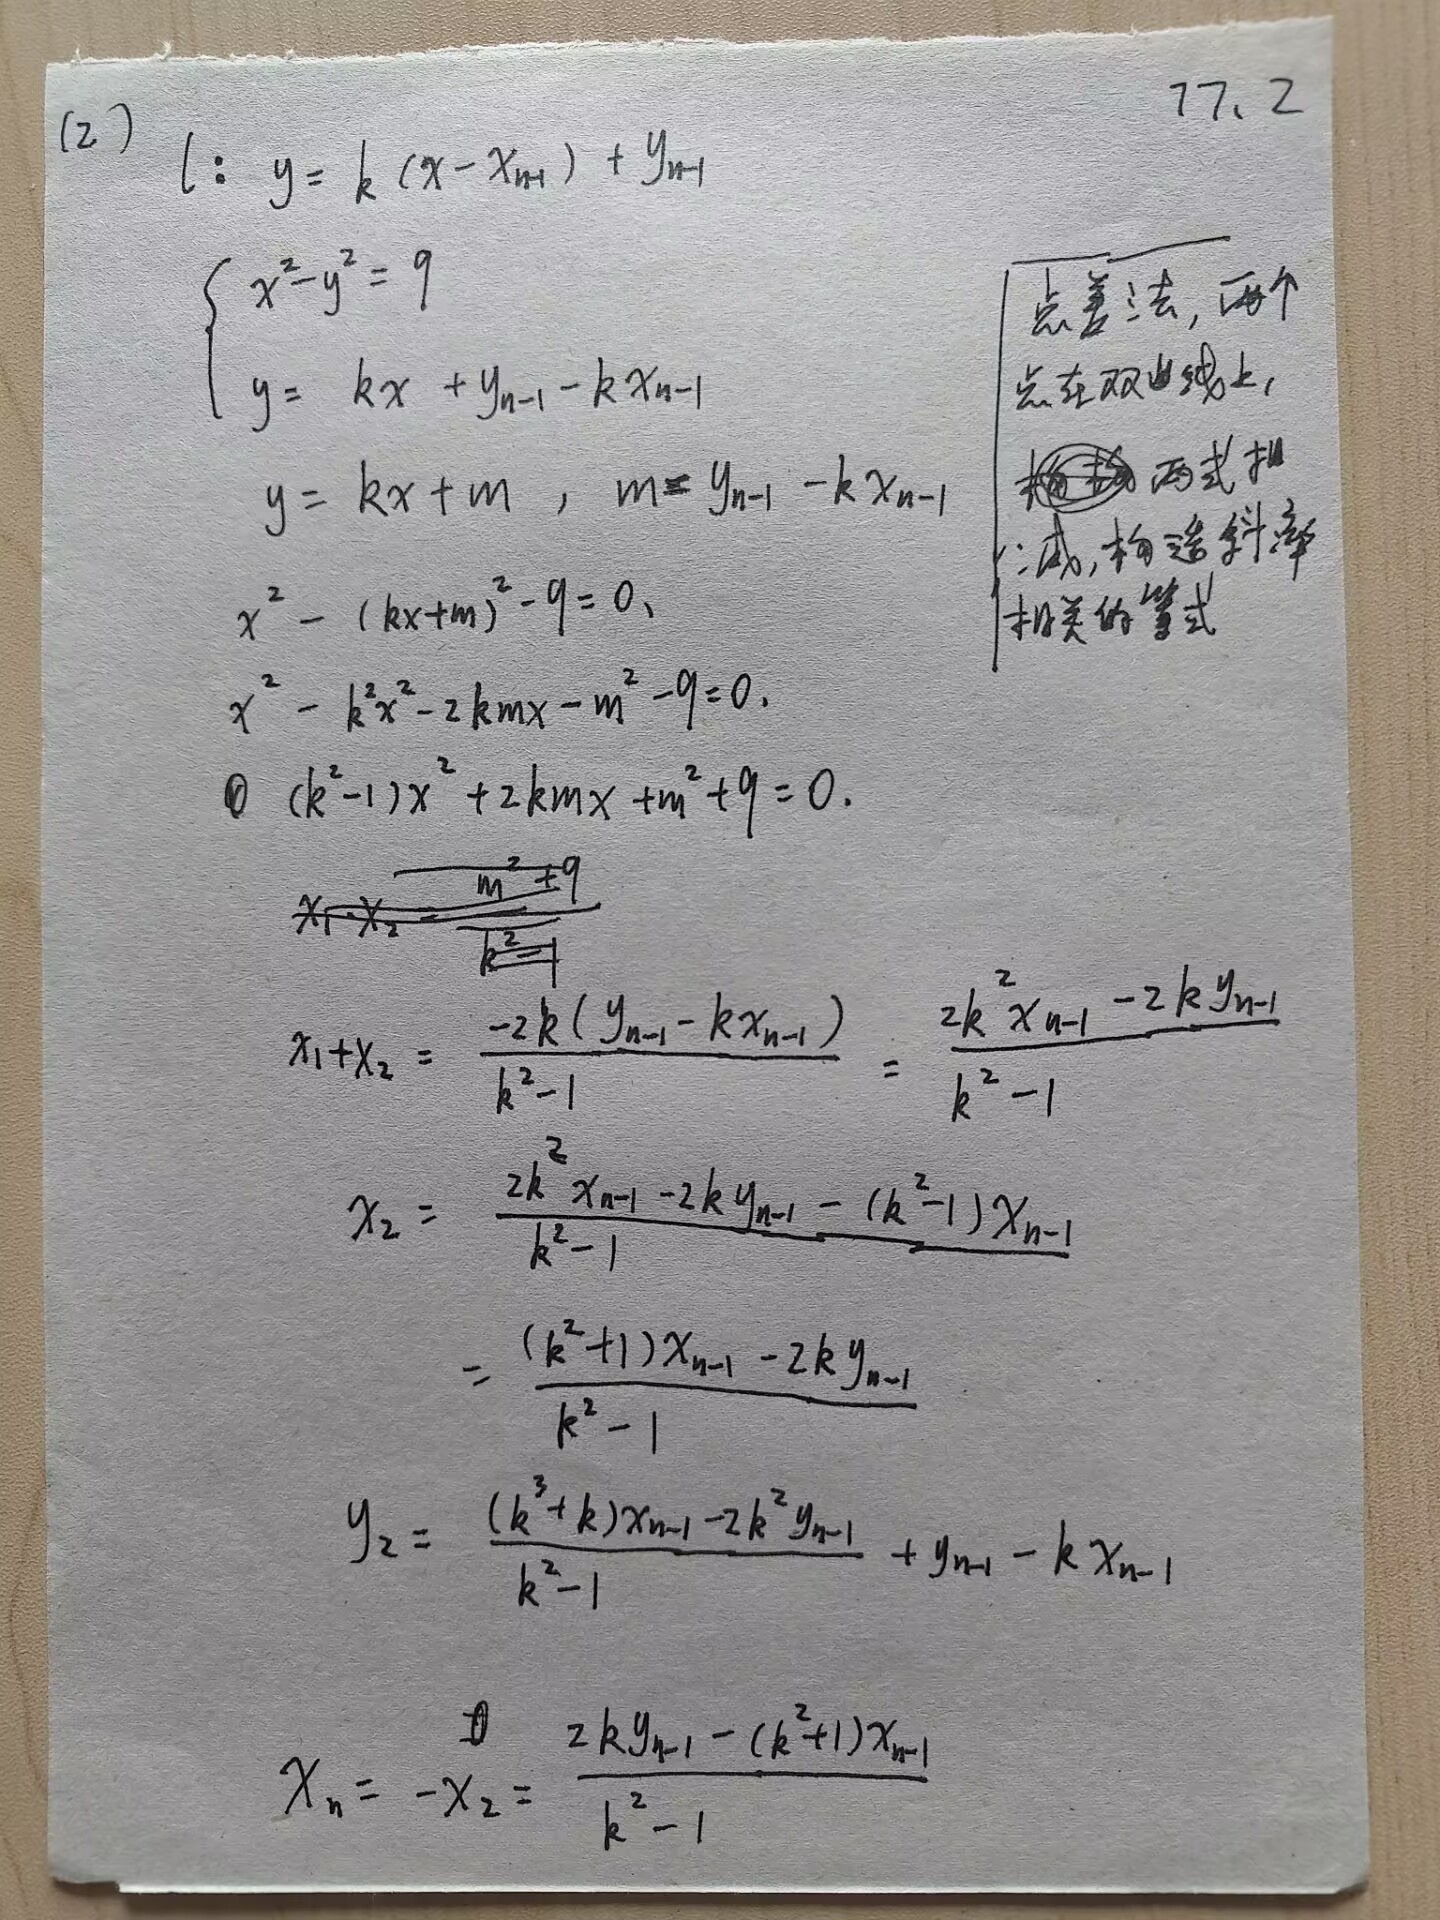 (2)
17.2
l: y = k(x - xₙ₋₁) + yₙ₋₁
{ x² - y² = 9
y = kx + yₙ₋₁ - kxₙ₋₁
y = kx + m , m = yₙ₋₁ - kxₙ₋₁
x² - (kx+m)² - 9 = 0,
x² - k²x² - 2kmx - m² - 9 = 0.
(k²-1)x² + 2kmx + m² + 9 = 0.
x₁·x₂ = (m²+9)/(k²-1)
x₁+x₂ = -2k(yₙ₋₁ - kxₙ₋₁)/(k²-1) = (2k²xₙ₋₁ - 2kyₙ₋₁)/(k²-1)
x₂ = (2k²xₙ₋₁ - 2kyₙ₋₁ - (k²-1)xₙ₋₁)/(k²-1)
= ((k²+1)xₙ₋₁ - 2kyₙ₋₁)/(k²-1)
y₂ = ((k³+k)xₙ₋₁ - 2k²yₙ₋₁)/(k²-1) + yₙ₋₁ - kxₙ₋₁
xₙ = -x₂ = (2kyₙ₋₁ - (k²+1)xₙ₋₁)/(k²-1)
点差法,两个
点在双曲线上,
两式相
减,构造斜率
相关的等式